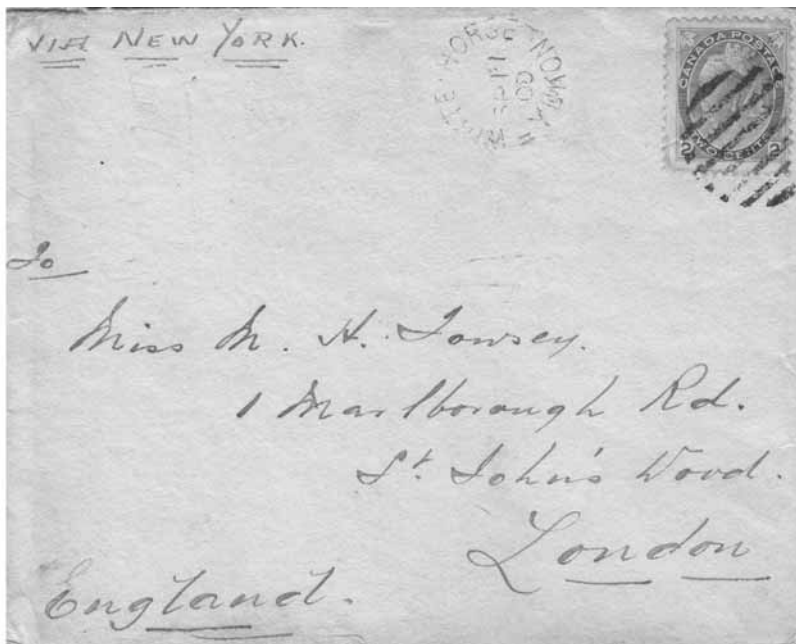 VIA NEW YORK.
WHITE HORSE
YUKON
SP 11
00
CANADA POSTAGE
2 TWO CENTS 2
To
Miss M. H. Towsey.
1 Marlborough Rd.
St. John's Wood.
London
England.